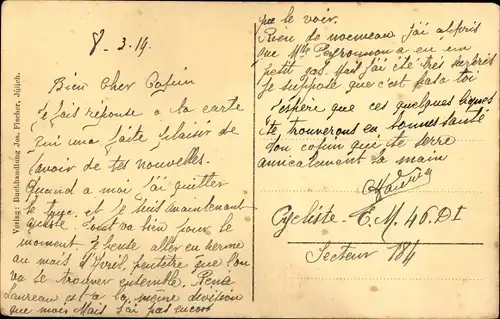 8-3.19.
Bien Cher Cousin
Je fais réponse a la carte
qui ma faite plaisir de
savoir de tes nouvelles.
Quand a moi j'ai quitter
le et je suis maintenant
Tout va bien pour le
moment. Je pense aller en
au mais d'Avril, peutetre que l'on
va se trouver ensemble. René
Laureau est a la même division
que moi Mais j'ai pas encore
pu le voir.
Rien de nouveau j'ai appris
que Mlle a eu un
petit gas. Mais j'ai été très surpris
Je suppose que c'est pas a toi
J'espère que ces quelques lignes
te trouverons en bonne santé
Ton cousin qui te serre
amicalement la main
Cycliste - E.M. 46.D.I
Secteur 184
Verlag: Buchhandlung Jos. Fischer, Jülich.